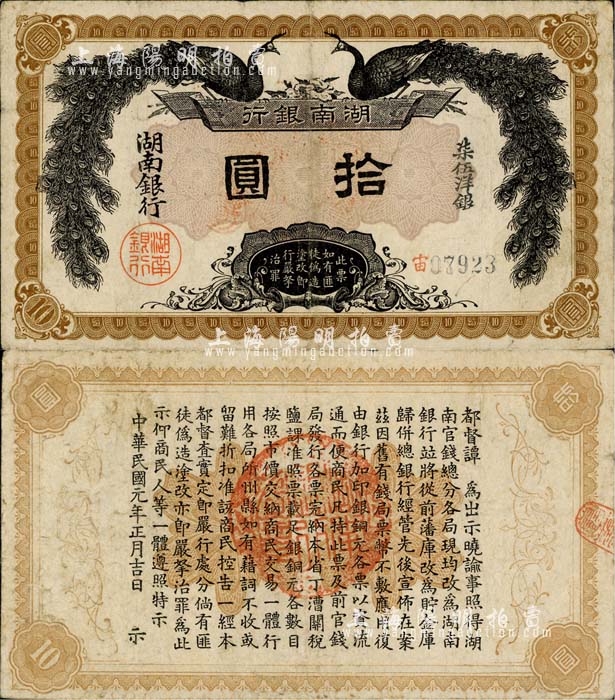 圓
拾
上海陽明拍賣
www.yangmingauction.com
湖南銀行
拾圓
柒伍洋銀
湖南銀行
湖南銀行
此票
如有匪
徒偽造
塗改即
行嚴拏
治罪
宙07923
10
圓
上海陽明拍賣
www.yangmingauction.com
圓
拾
都督譚　為出示曉諭事照得湖
南官錢總分各局現均改為湖南
銀行竝將從前藩庫改為貯金庫
歸併總銀行經營先後宣佈在案
茲因舊有錢局票幣不敷應用復
由銀行加印銀銅元各票以資流
通而便商民凡持此票及前官錢
局發行各票完納本省丁漕關稅
鹽課准照票載足銀銅元各數目
按照市價交納商民交易一體行
用各局所州縣如有藉詞不收或
留難折扣准該商民控告一經本
都督查實定即嚴行處分倘有匪
徒偽造塗改亦即嚴拏治罪為此
示仰商民人等一體遵照特示
中華民國元年正月吉日　示
上海陽明拍賣
www.yangmingauction.com
10
圓